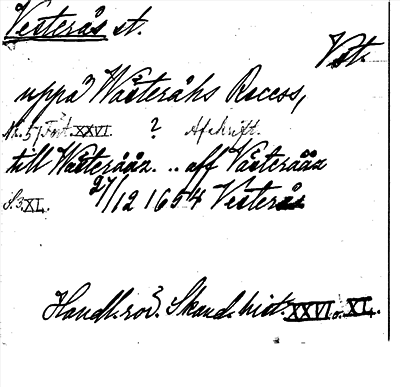 Vesterås st.
Vst.
uppå Wästeråhs Recess,
N. 57 Fört. XXVI. ? Afskrift.
till Wästerååz. .. aff Västerååz
S. 3, XL. 27/12 1654 Vesterås
Handl. rör. Skand. hist. XXVI o. XL.